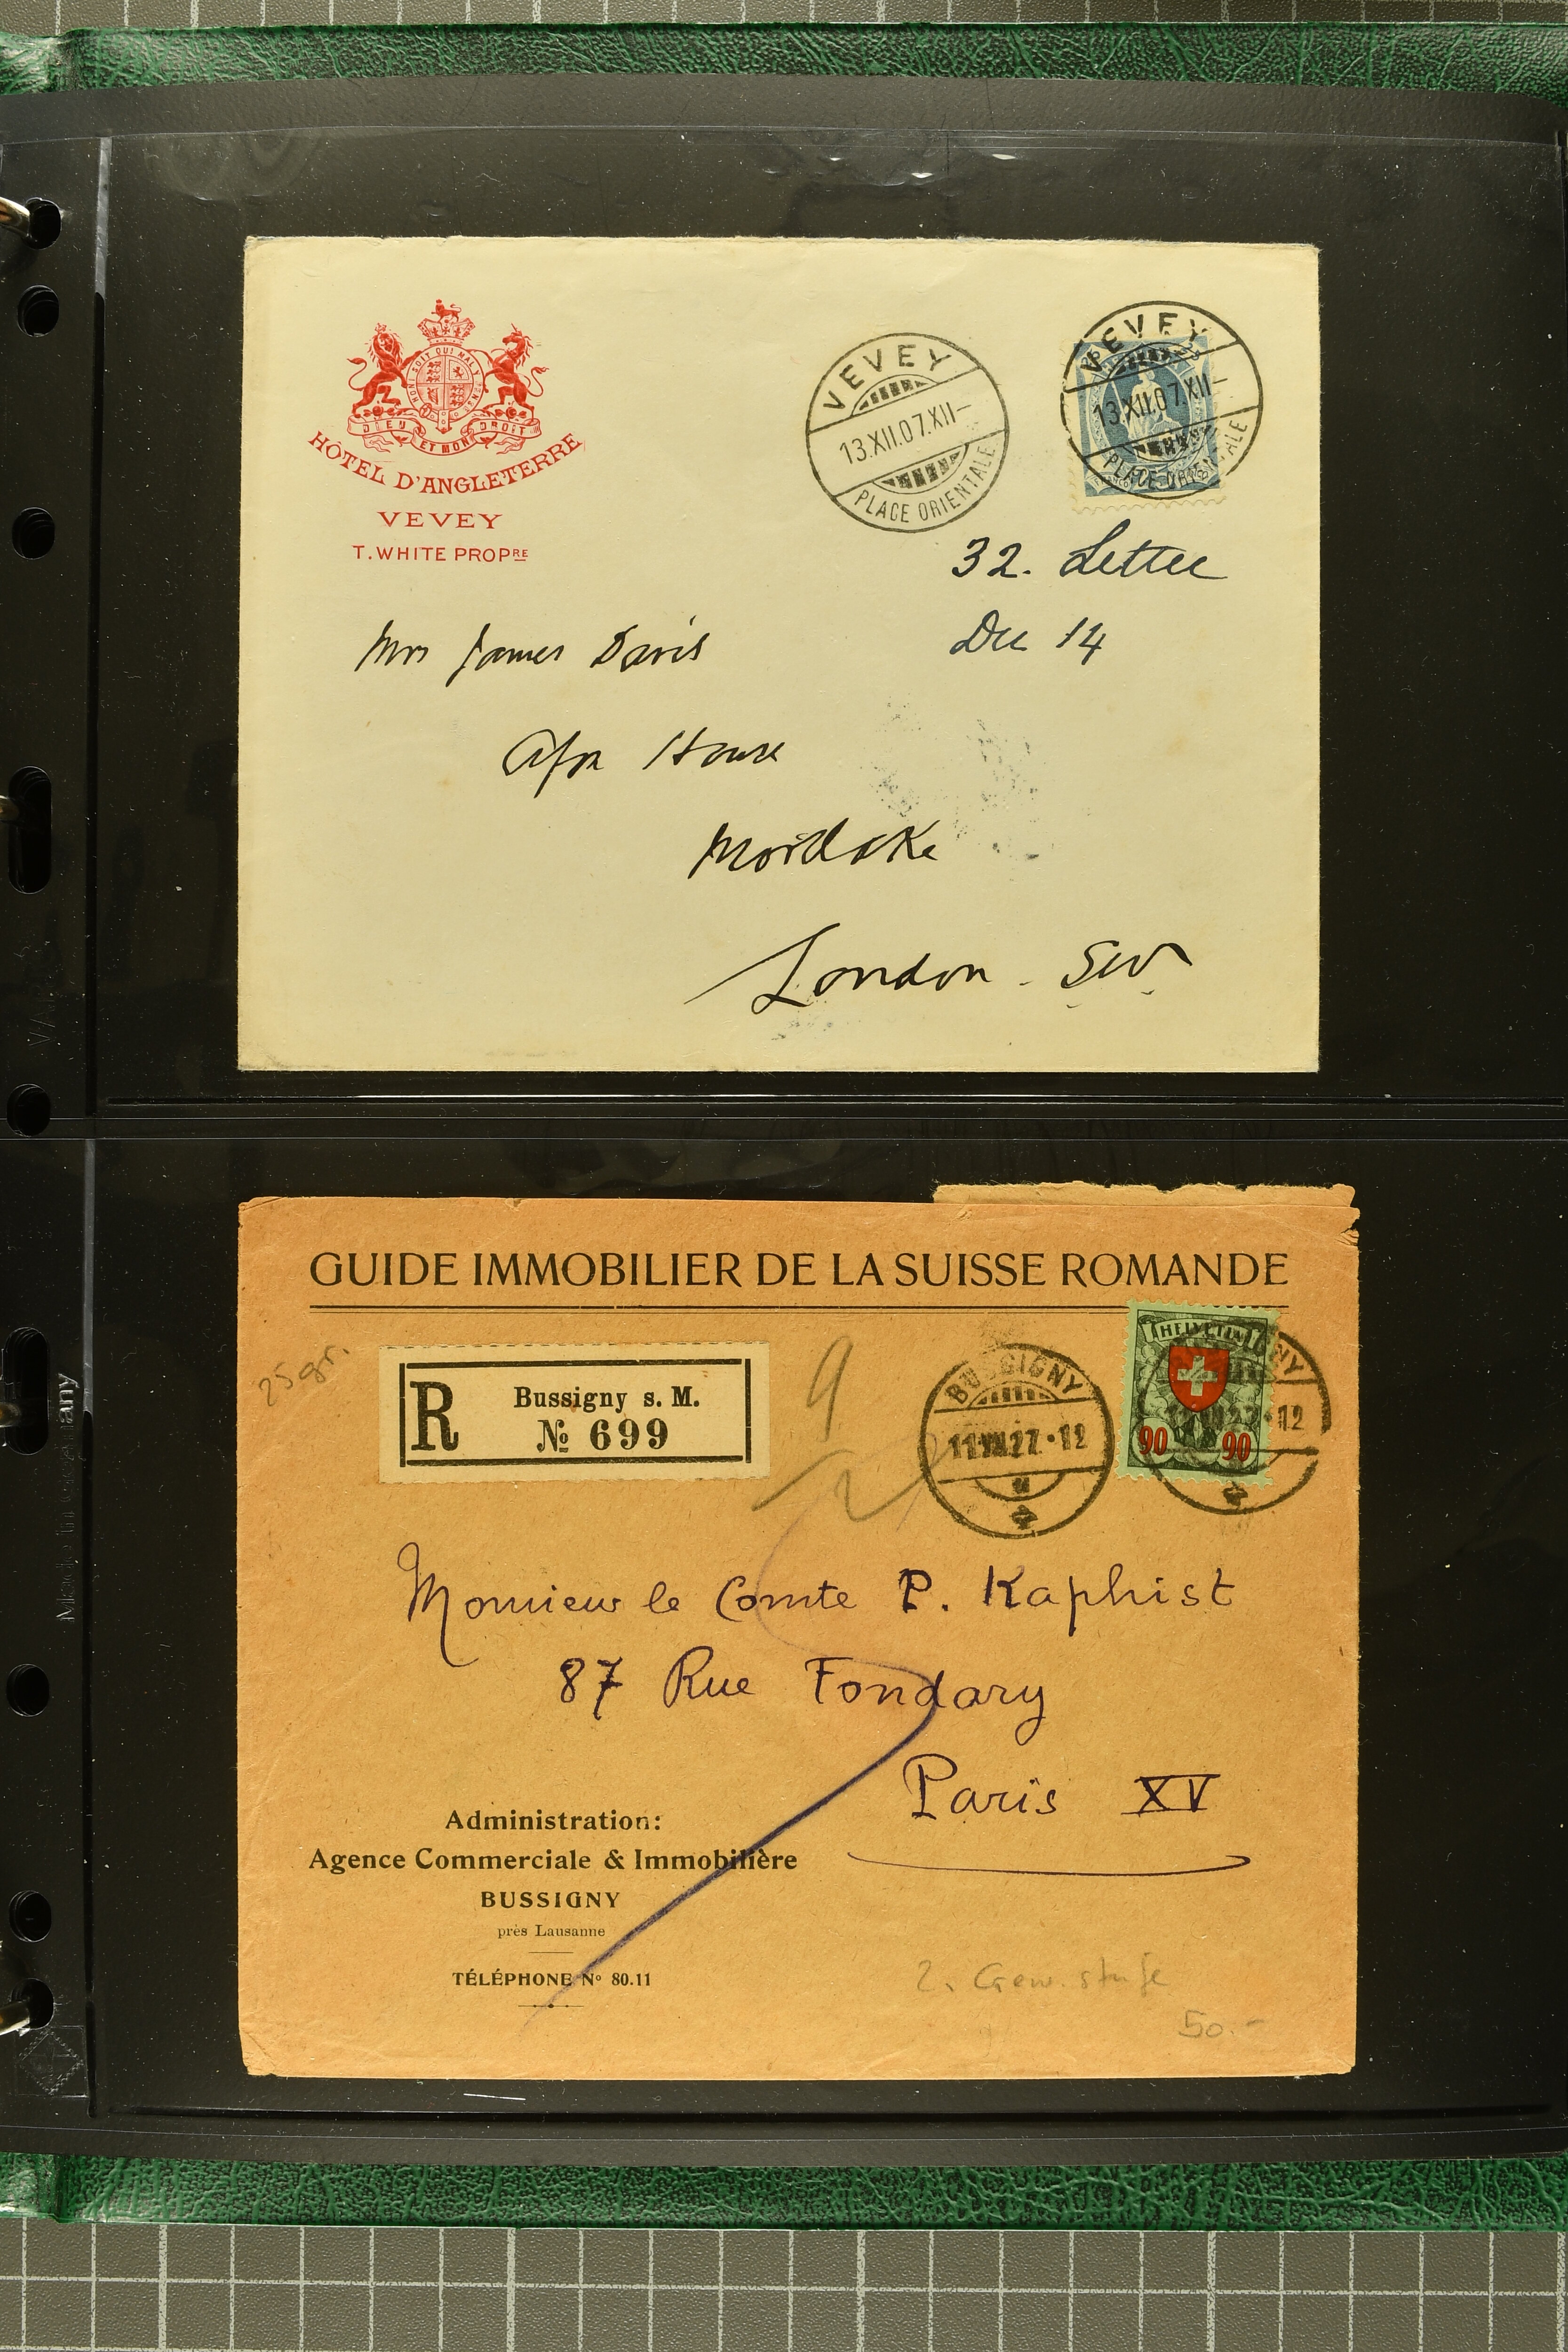 HONI SOIT QUI MAL Y PENSE
DIEU ET MON DROIT
HÔTEL D'ANGLETERRE
VEVEY
T. WHITE PROPRE
VEVEY
13.XII.07.XII–
PLACE ORIENTALE
VEVEY
13.XII.07.XII–
PLACE ORIENTALE
32. Letter
Dec 14
Mrs James Davis
House
Mortlake
London. SW.
GUIDE IMMOBILIER DE LA SUISSE ROMANDE
25 gr.
R
Bussigny s. M.
№ 699
9
BUSSIGNY
11.VII.27.-12
HELVETIA
90 90
Monsieur le Comte P. Kaphist
87 Rue Fondary
Paris XV
Administration:
Agence Commerciale & Immobilière
BUSSIGNY
près Lausanne
TÉLÉPHONE No 80.11
2. Gew. stufe
50.–
Made in Germany